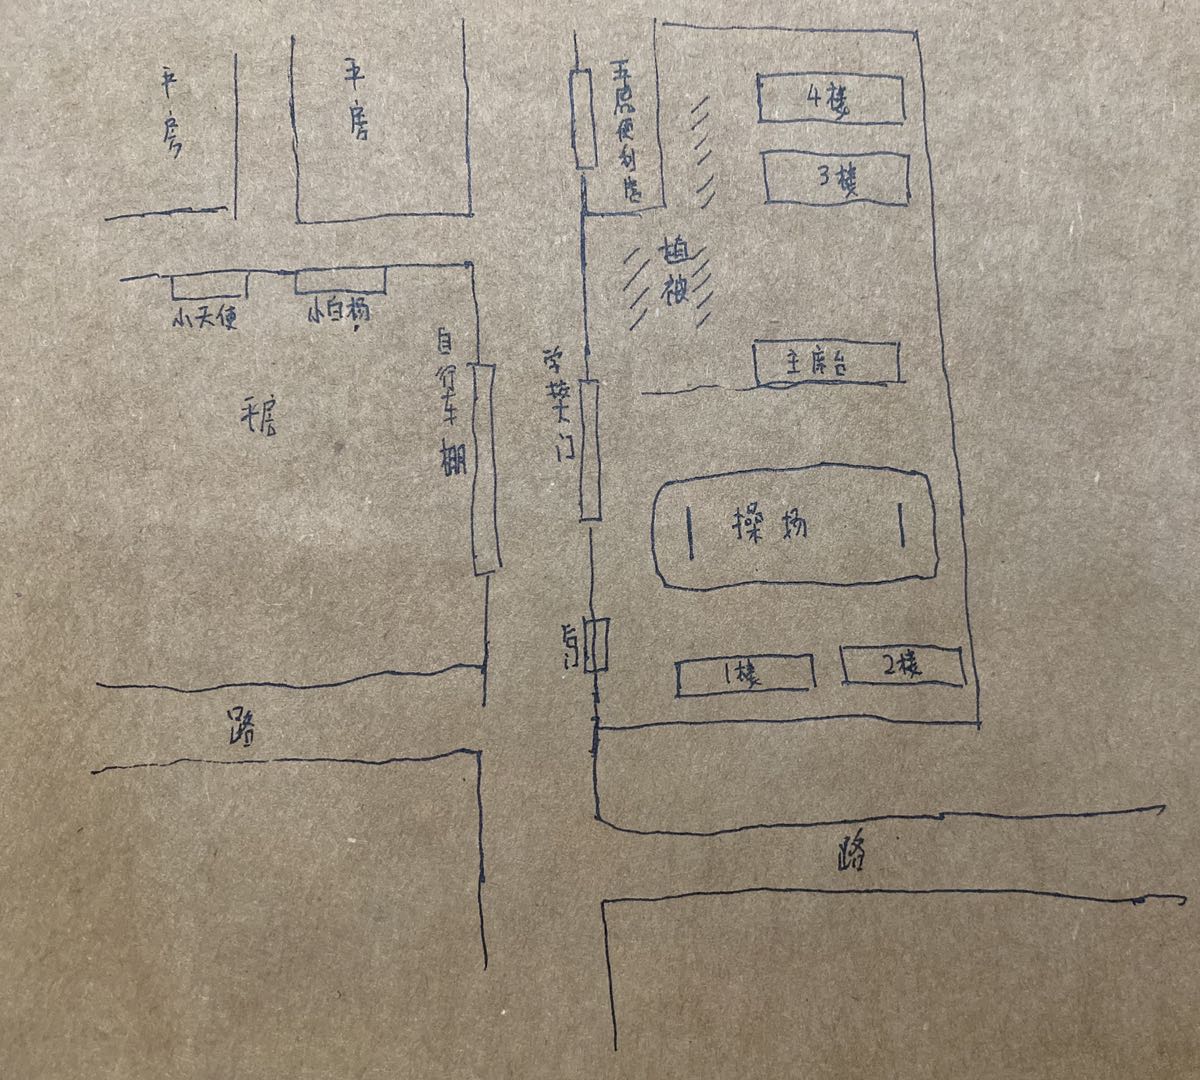 平房
平房
五原便利店
4楼
3楼
植被
小天使
小白杨
自行车棚
学校大门
主席台
平房
操场
后门
1楼
2楼
路
路